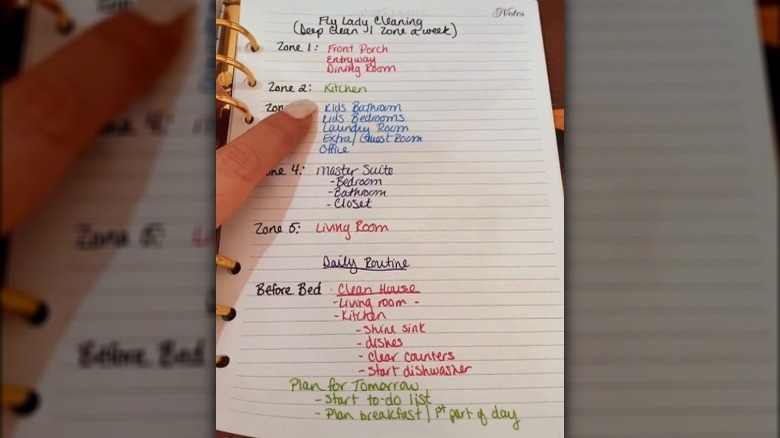 Notes
Fly Lady Cleaning
(Deep Clean 1 Zone a week)
Zone 1: Front Porch
Entryway
Dining Room
Zone 2: Kitchen
Zon Kids Bathroom
Kids Bedrooms
Laundry Room
Extra/Guest Room
Office
ne 4: Master Suite
-Bedroom
-Bathroom
-Closet
Zone 5: Living Room
Daily Routine
Before Bed - Clean House
-Living room -
-Kitchen
-Shine sink
-dishes
-clear counters
-start dishwasher
Plan for Tomorrow
-Start to-do list
-Plan breakfast/1st part of day